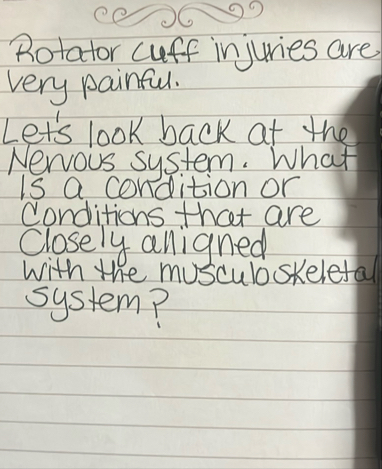 Rotator cuff injuries are
very painful.
Let's look back at the
Nervous system. What
is a condition or
Conditions that are
Closely alligned
with the musculoskeletal
system?